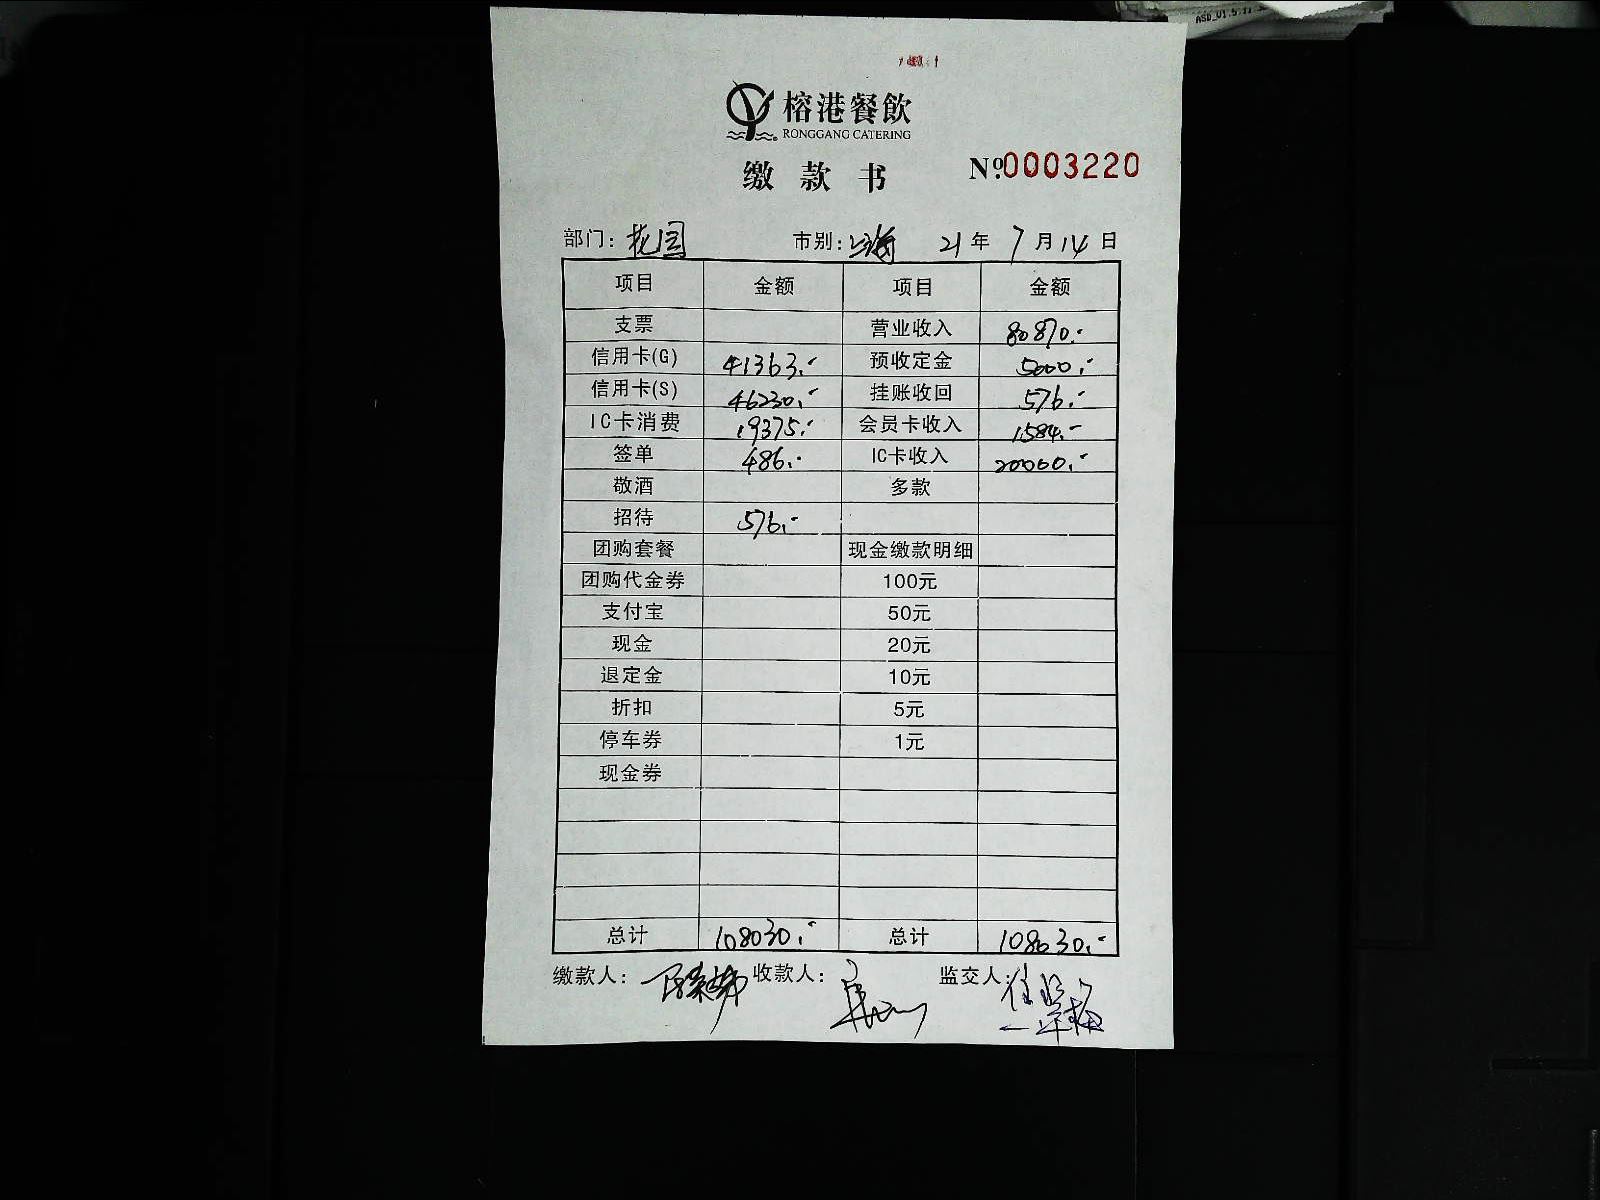 榕港餐飲
RONGGANG CATERING
缴款书 №0003220
部门: 花园 市别: 上海 21年7月14日
项目 金额 项目 金额
支票 营业收入 80870.-
信用卡(G) 41363.- 预收定金 5000.-
信用卡(S) 46230.- 挂账收回 576.-
IC卡消费 19375.- 会员卡收入 1584.-
签单 486.- IC卡收入 20000.-
敬酒 多款
招待 576.-
团购套餐 现金缴款明细
团购代金券 100元
支付宝 50元
现金 20元
退定金 10元
折扣 5元
停车券 1元
现金券
总计 108030.- 总计 108030.-
缴款人: 收款人: 监交人: